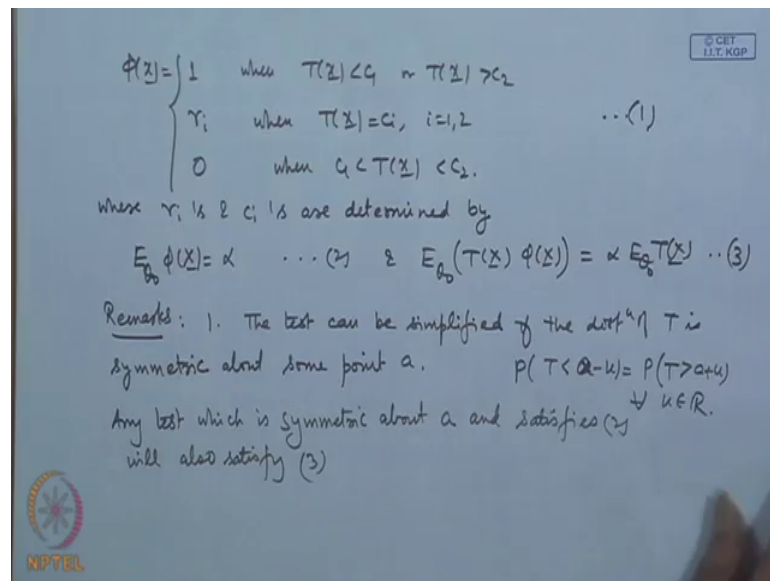 © CET
I.I.T. KGP
ϕ(x) = { 1 when T(x) < c₁ or T(x) > c₂
γᵢ when T(x) = cᵢ, i=1,2 ...(1)
0 when c₁ < T(x) < c₂.
where γᵢ's & cᵢ's are determined by
E_θ₀ ϕ(x) = α ...(2) & E_θ₀(T(x) ϕ(x)) = α E_θ₀ T(x) ..(3)
Remarks: 1. The test can be simplified if the distⁿ of T is
symmetric about some point a. P(T < a-u) = P(T > a+u)
∀ u ∈ ℝ.
Any test which is symmetric about a and satisfies (2)
will also satisfy (3)
NPTEL